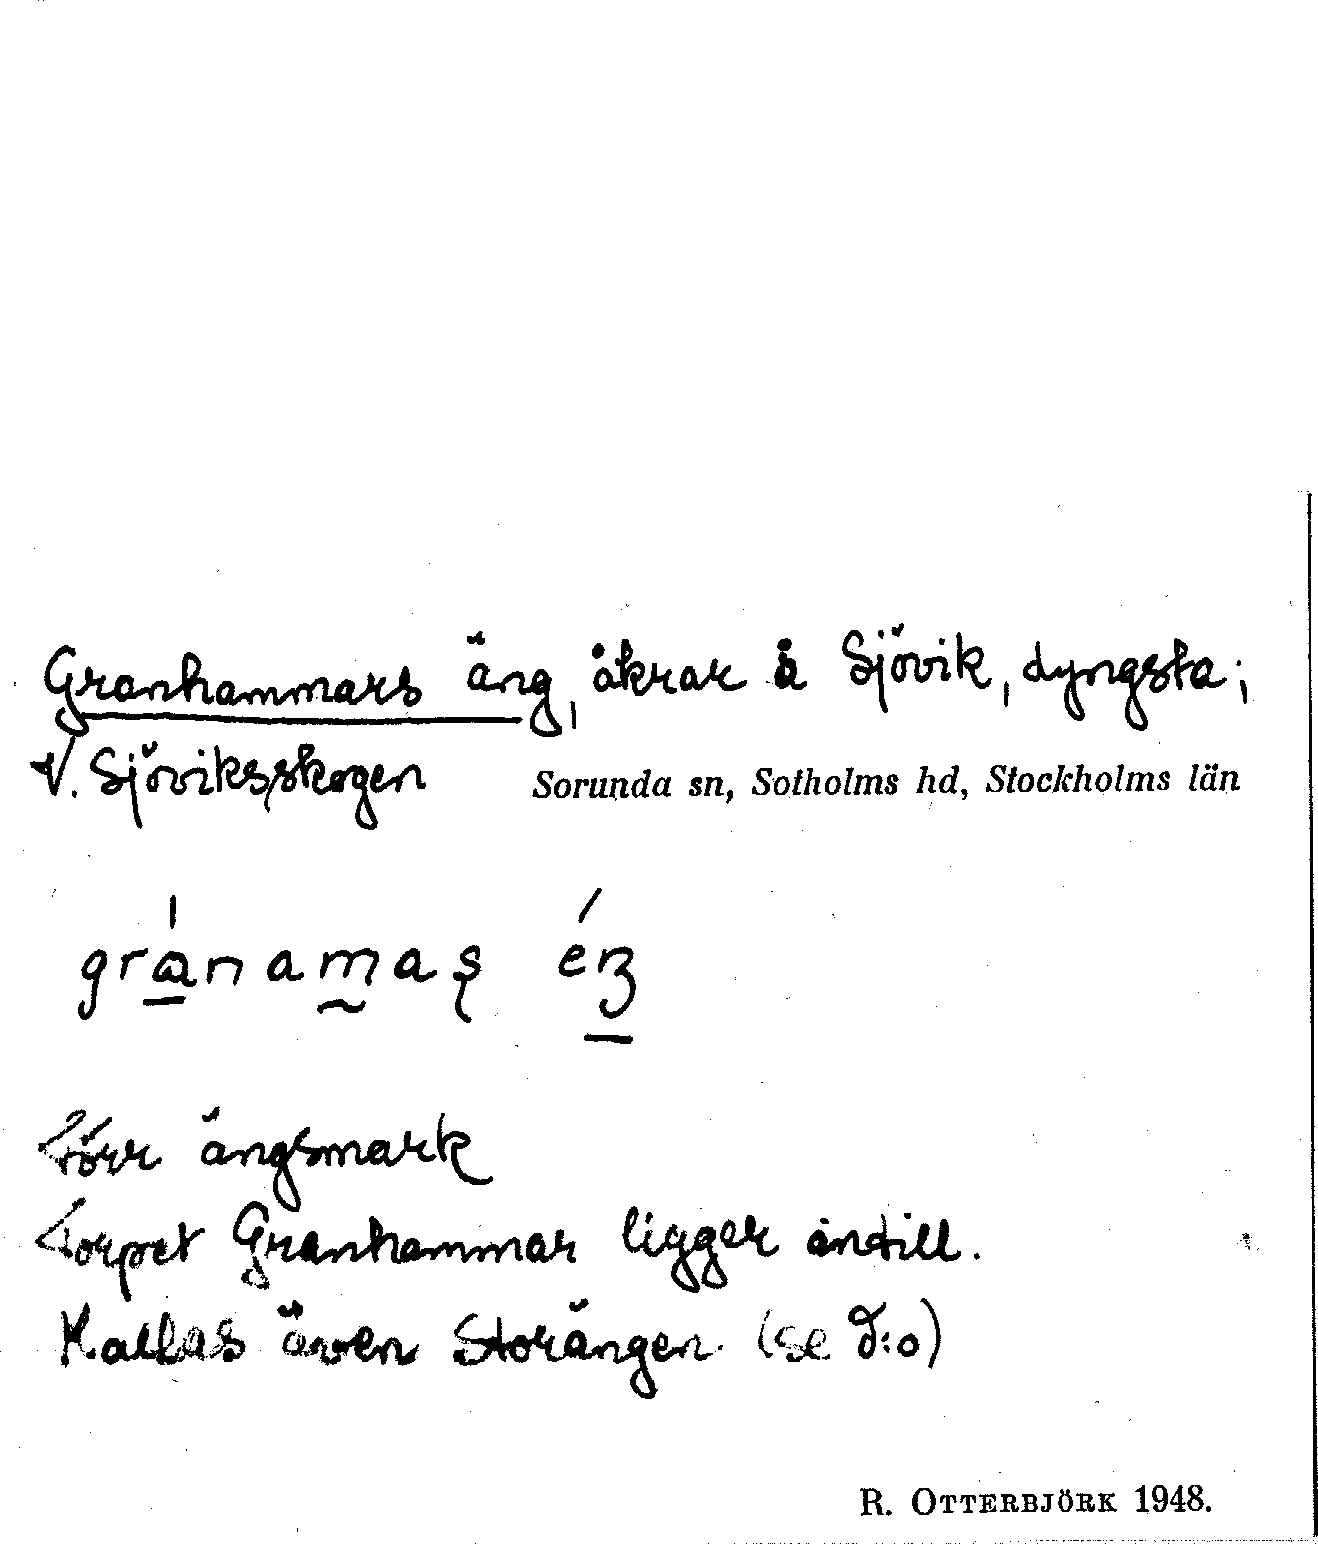 Granhammars äng, åkrar å Sjövik, Dyngsta;
V. Sjöviksskogen Sorunda sn, Sotholms hd, Stockholms län
Torr ängsmark
Torpet Granhammar ligger intill.
Kallas även Storängen. (se d:o)
R. OTTERBJÖRK 1948.